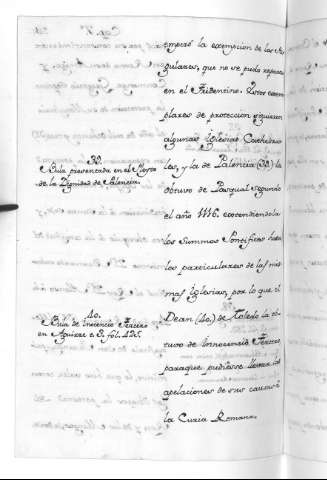 la exempcion de los Re-
gulares, que no se pudo
en el Tridentino. Estos exem-
plares de proteccion siguieron
algunas Iglesias Cathedra-
les, y la de Palencia (39.) la
obtuvo de Pasqual segundo
el año 1116. extendiendola
los Summos Pontifices hasta
los particulares de las mis-
mas Iglesias, por lo que el
Dean (40.) de Toledo la ob-
tuvo de Innocencio Tercero
paraque pudiesse llevar las
apelaciones de sus causas à
la Curia Romana.
39.
Bula presentada en el
de la Dignidad de Palencia.
40.
Bula de Inocencio Tercero
en